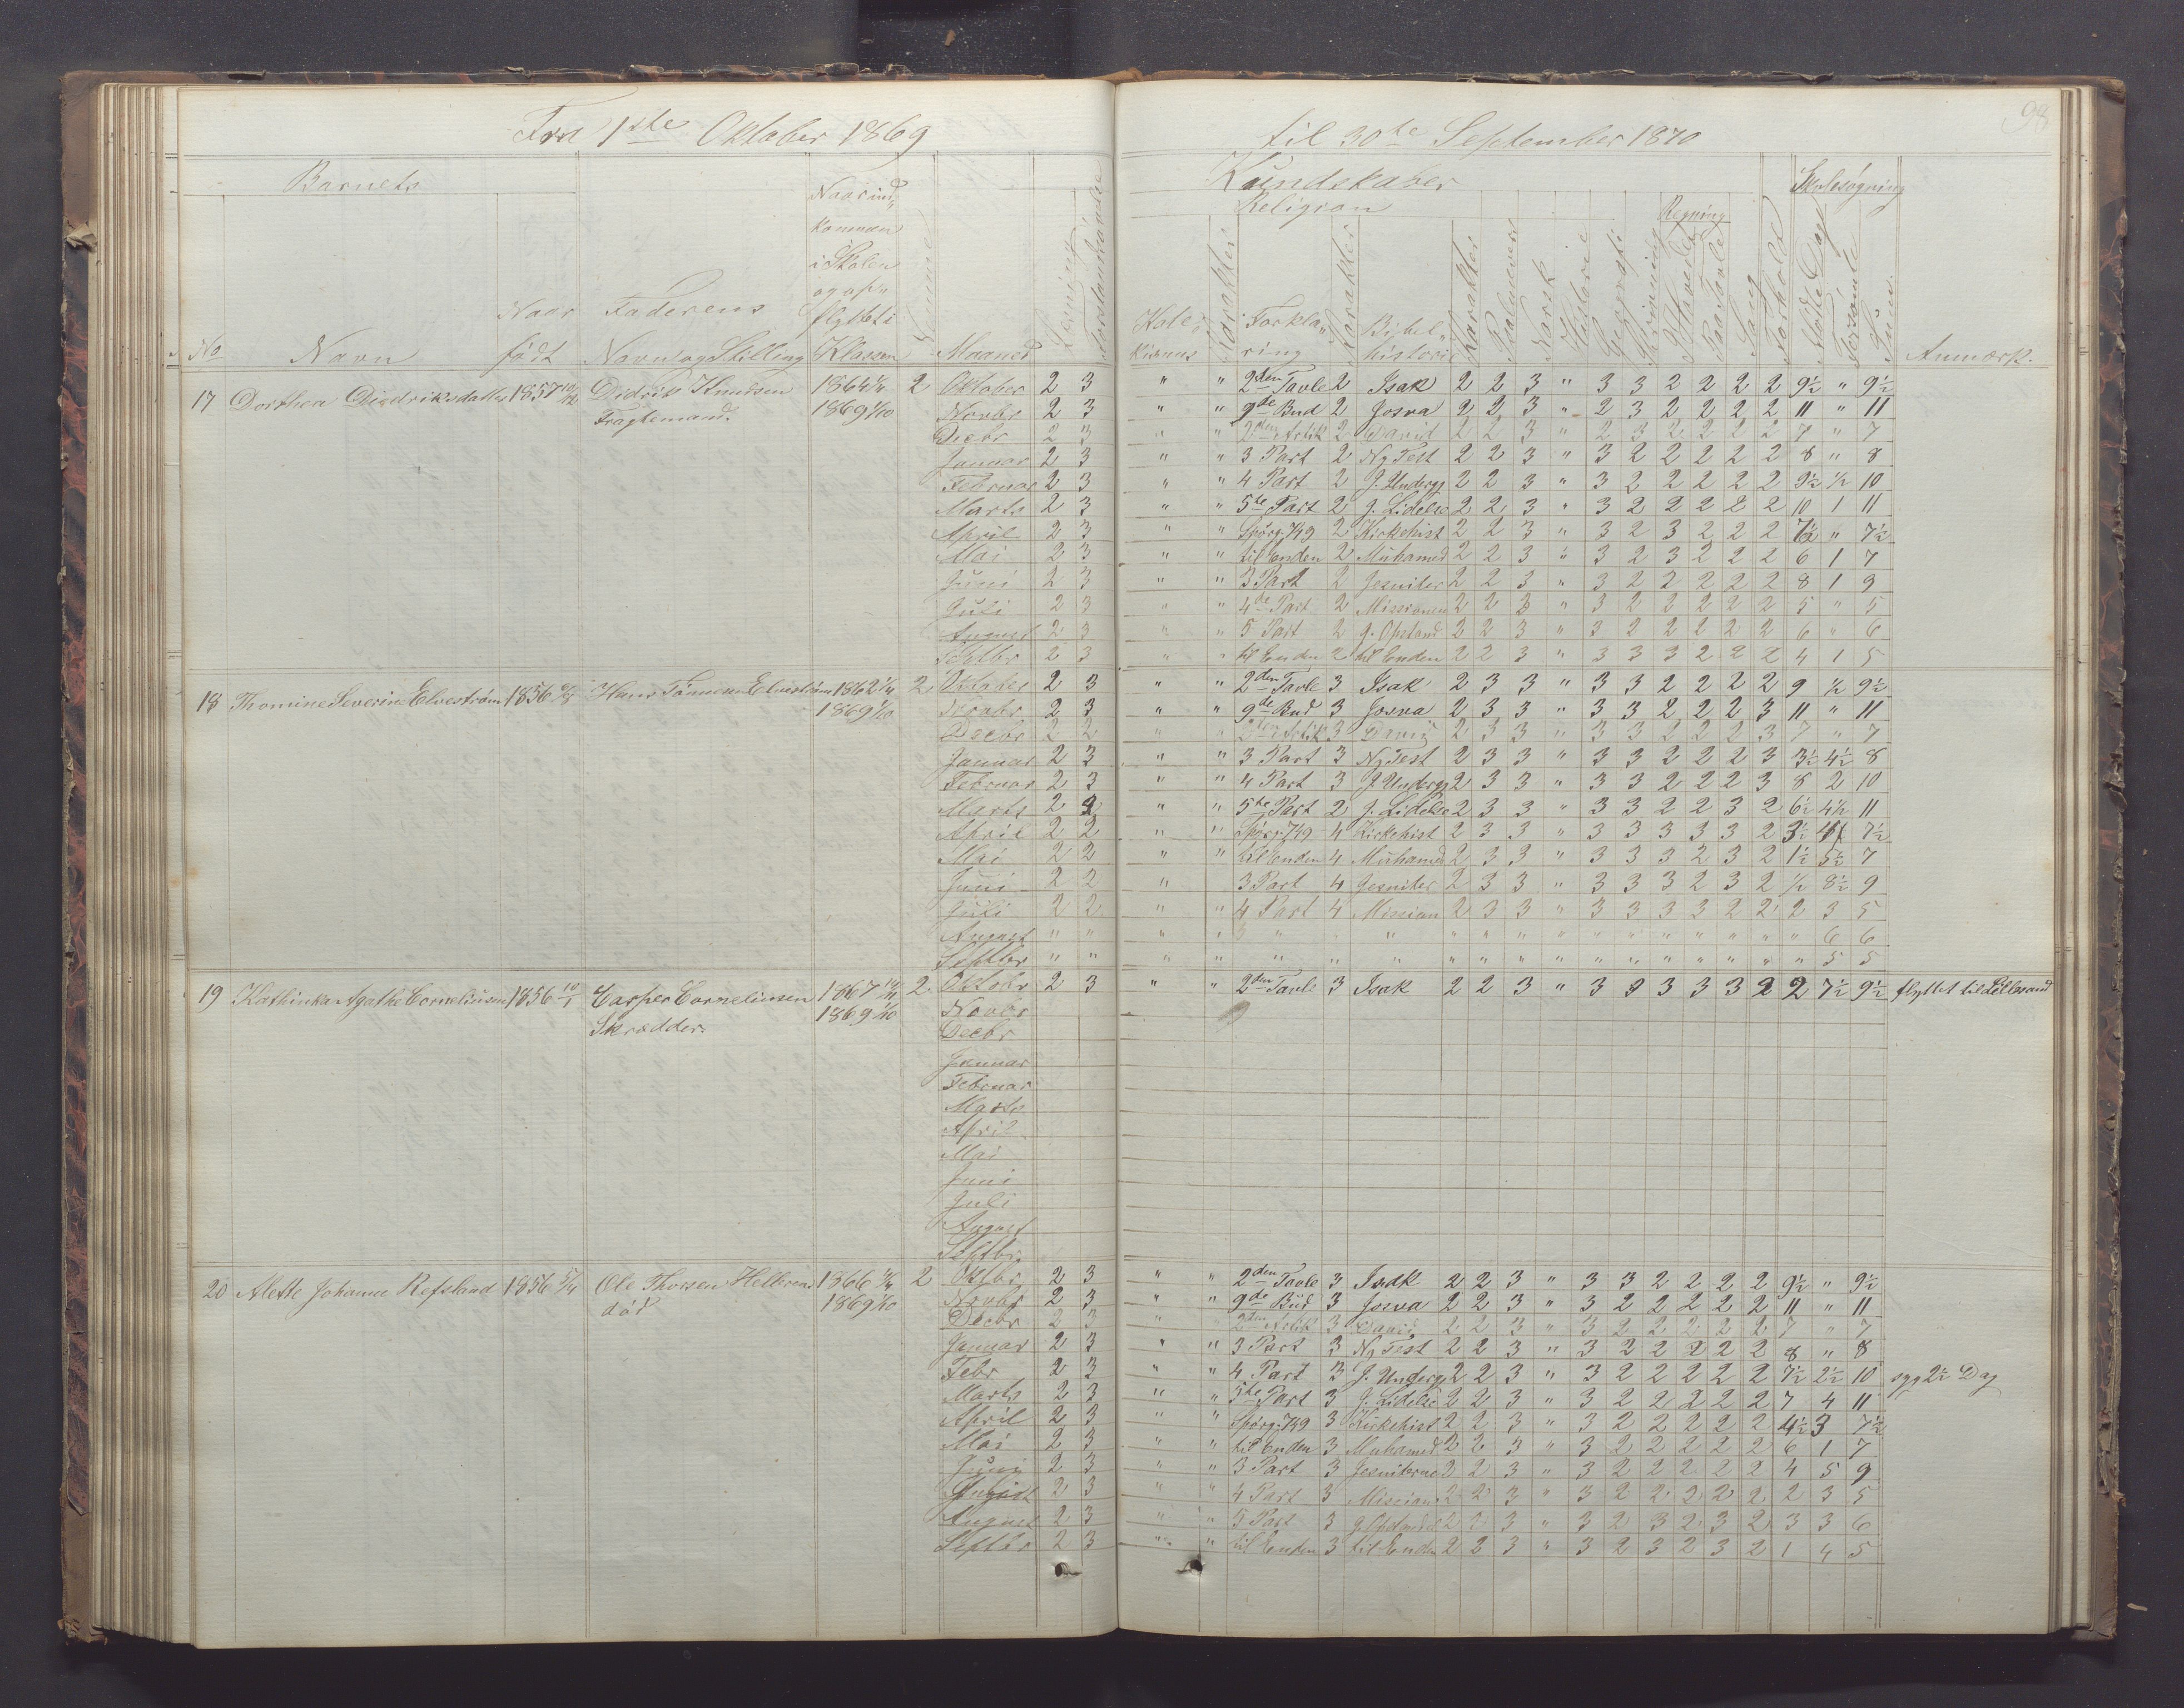 Fra 1ste Oktober 1869
til 30te September 1870
98
Barnets
Naar ind„
kommen
i Skolen
og op„
flyttet i
Klassen
Kundskaber
Religion
Regning
Skolesøgning
No
Navn
Naar født
Faderens Navn og Stilling
Maaned
Læsning
Kate„
kismus
Karakter
Forkla„
ring
Karakter
Bibel„
historie
Karakter
Psalmevers
Norsk
Historie
Geografi
Skrivning
Paa Tavle
Sang
Forhold
Mødte Dage
Forsømte
Sum
Anmærk.
17 Dorthea Diedriksdatter 1857 Didrik Knudsen 1864 2 Oktober 2 3 " " 2den Tavle 2 Isak 2 2 3 " 3 3 2 2 2 2 9½ " 9½
Fragtemand. 1869 1/10 Novbr 2 3 " " 9de Bud 2 Josva 2 2 3 " 2 3 2 2 2 2 11 " 11
Decbr 2 3 " " 2den Artik 2 David 2 2 3 " 2 3 2 2 2 2 7 " 7
Januar 2 3 " " 3 Part 2 Ny Test 2 2 3 " 3 2 2 2 2 2 8 " 8
Februar 2 3 " " 4 Part 2 J. Underg 2 2 3 " 3 2 2 2 2 2 9½ ½ 10
Marts 2 3 " " 5te Part 2 J. Lidelse 2 2 3 " 3 2 2 2 2 2 10 1 11
April 2 3 " " Spørg. 749 2 Kirkehist 2 2 3 " 3 2 3 2 2 2 7½ " 7½
Mai 2 3 " " til Enden 2 Muhamed 2 2 3 " 3 2 3 2 2 2 6 1 7
Juni 2 3 " " 3 Part 2 Jesuiter 2 2 3 " 3 2 2 2 2 2 8 1 9
Juli 2 3 " " 4de Part 2 Missionen 2 2 3 " 3 2 2 2 2 2 5 " 5
August 2 3 " " 5 Part 2 J. Opstand 2 2 3 " 3 2 2 2 2 2 6 " 6
Septbr 2 3 " " til Enden 2 til Enden 2 2 3 " 3 3 3 2 2 2 4 1 5
18 Thomine Severine Elvestrøm 1856 Hans Tønnesen Elvestrøm 1862 2 Oktober 2 3 " " 2den Tavle 3 Isak 2 3 3 " 3 3 2 2 2 2 9 ½ 9½
1869 1/10 Novbr 2 3 " " 9de Bud 3 Josva 2 3 3 " 3 3 2 2 2 3 11 " 11
Decbr 2 2 " " 2den Artik 3 David 2 3 3 " 3 3 2 2 2 3 7 " 7
Januar 2 3 " " 3 Part 3 Ny Test 2 3 3 " 3 3 2 2 2 3 3½ 4½ 8
Februar 2 3 " " 4 Part 3 J. Underg 2 3 3 " 3 3 2 2 2 3 8 2 10
Marts 2 2 " " 5te Part 2 J. Lidelse 2 3 3 " 3 3 2 2 3 2 6½ 4½ 11
April 2 2 " " Spørg. 749 4 Kirkehist 2 3 3 " 3 3 3 3 3 2 3½ 4 7½
Mai 2 2 " " til Enden 4 Muhamed 2 3 3 " 3 3 3 2 3 2 1½ 5½ 7
Juni 2 2 " 3 Part 4 Jesuiter 2 3 3 " 3 3 3 2 3 2 ½ 8½ 9
Juli 2 2 " " 4 Part 4 Mission 2 3 3 " 3 3 3 3 2 2 2 3 5
August " " " " " " " " " " " " " " " " " 6 6
Septbr " " " " " " " " " " " " " " " " " " 5 5
19 Kathinka Agathe Corneliusen 1856 10/1 Casper Corneliusen 1867 2 Oktobr 2 3 " " 2den Tavle 3 Isak 2 2 3 " 3 3 3 3 3 2 2 7½ 9½ flyttet til Lillesand
Skrædder. 1869 1/10 Novbr
Decbr
Januar
Februar
Marts
April
Mai
Juni
Juli
August
Septbr
20 Alette Johanne Refsland 1856 Ole Thorsen 1866 2 Oktbr 2 3 " " 2den Tavle 3 Isak 2 2 3 " 3 3 2 2 2 2 9½ " 9½
død 1869 1/10 Novbr 2 3 " " 9de Bud 3 Josva 2 2 3 " 3 2 2 2 2 2 11 " 11
Decbr 2 3 " " 2den Artik 3 David 2 2 3 " 3 2 2 2 2 2 7 " 7
Januar 2 3 " " 3 Part 3 Ny Test 2 2 3 " 3 2 2 2 2 2 8 " 8
Febr 2 3 " " 4 Part 3 J. Underg 2 2 3 " 3 2 2 2 2 2 7½ 2½ 10 syg 2½ Dag
Marts 2 3 " " 5te Part 3 J. Lidelse 2 2 3 " 3 2 2 2 2 2 7 4 11
April 2 3 " " Spørg. 749 3 Kirkehist 2 2 3 " 3 2 2 2 2 2 4½ 3 7½
Mai 2 3 " " til Enden 3 Muhamed 2 2 3 " 3 2 2 2 2 2 6 1 7
Juni 2 3 " " 3 Part 3 Jesuiterne 2 2 3 " 3 2 2 2 2 2 4 5 9
2 3 " " 4 Part 3 Mission 2 2 3 " 3 2 2 2 2 2 2 3 5
August 2 3 " " 5 Part 3 2 3 3 " 3 2 3 2 3 2 3 3 6
Septbr 2 3 " " til Enden 3 til Enden 2 2 3 " 3 2 3 2 3 2 1 4 5